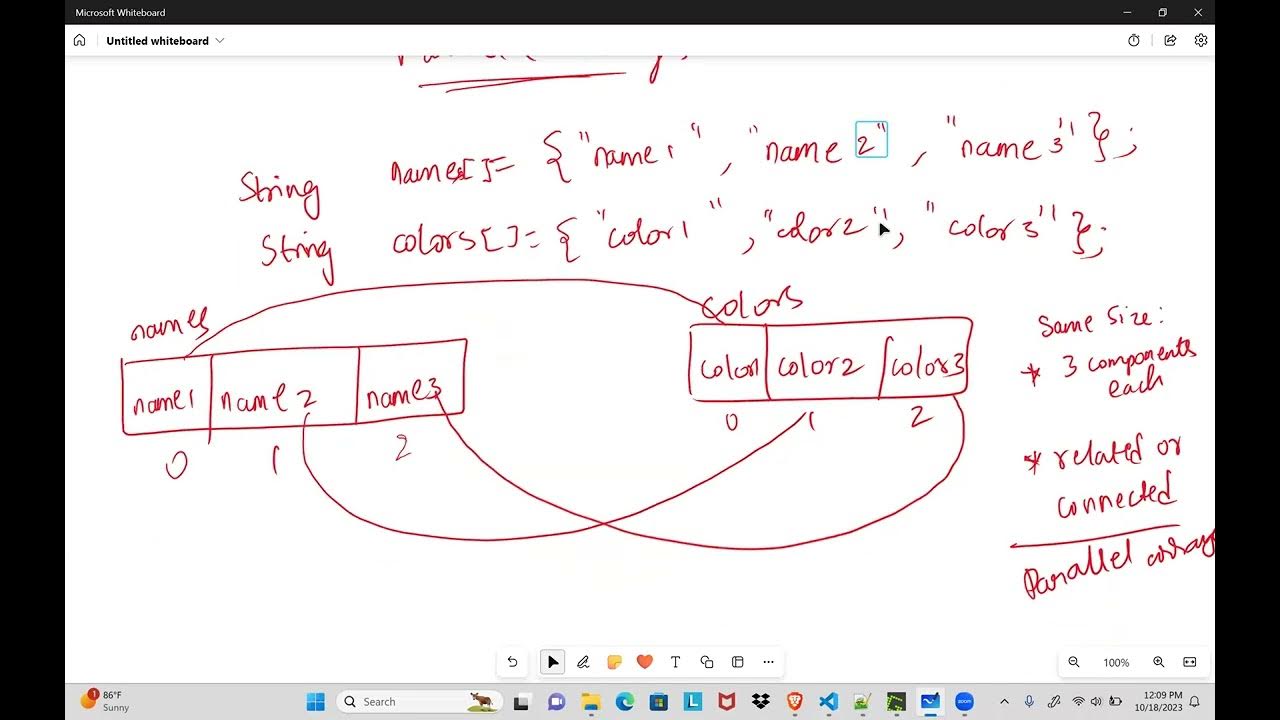 Microsoft Whiteboard
Untitled whiteboard
String names[]= {"name1", "name2", "name3"};
String colors[]= {"color1", "color2", "color3"};
names
name1 name2 name3
0 1 2
colors
color1 color2 color3
0 1 2
Same size:
* 3 components
each
* related or
connected
Parallel array
100%
1
86°F
Sunny
Search
zoom
12:09 PM
10/18/2023